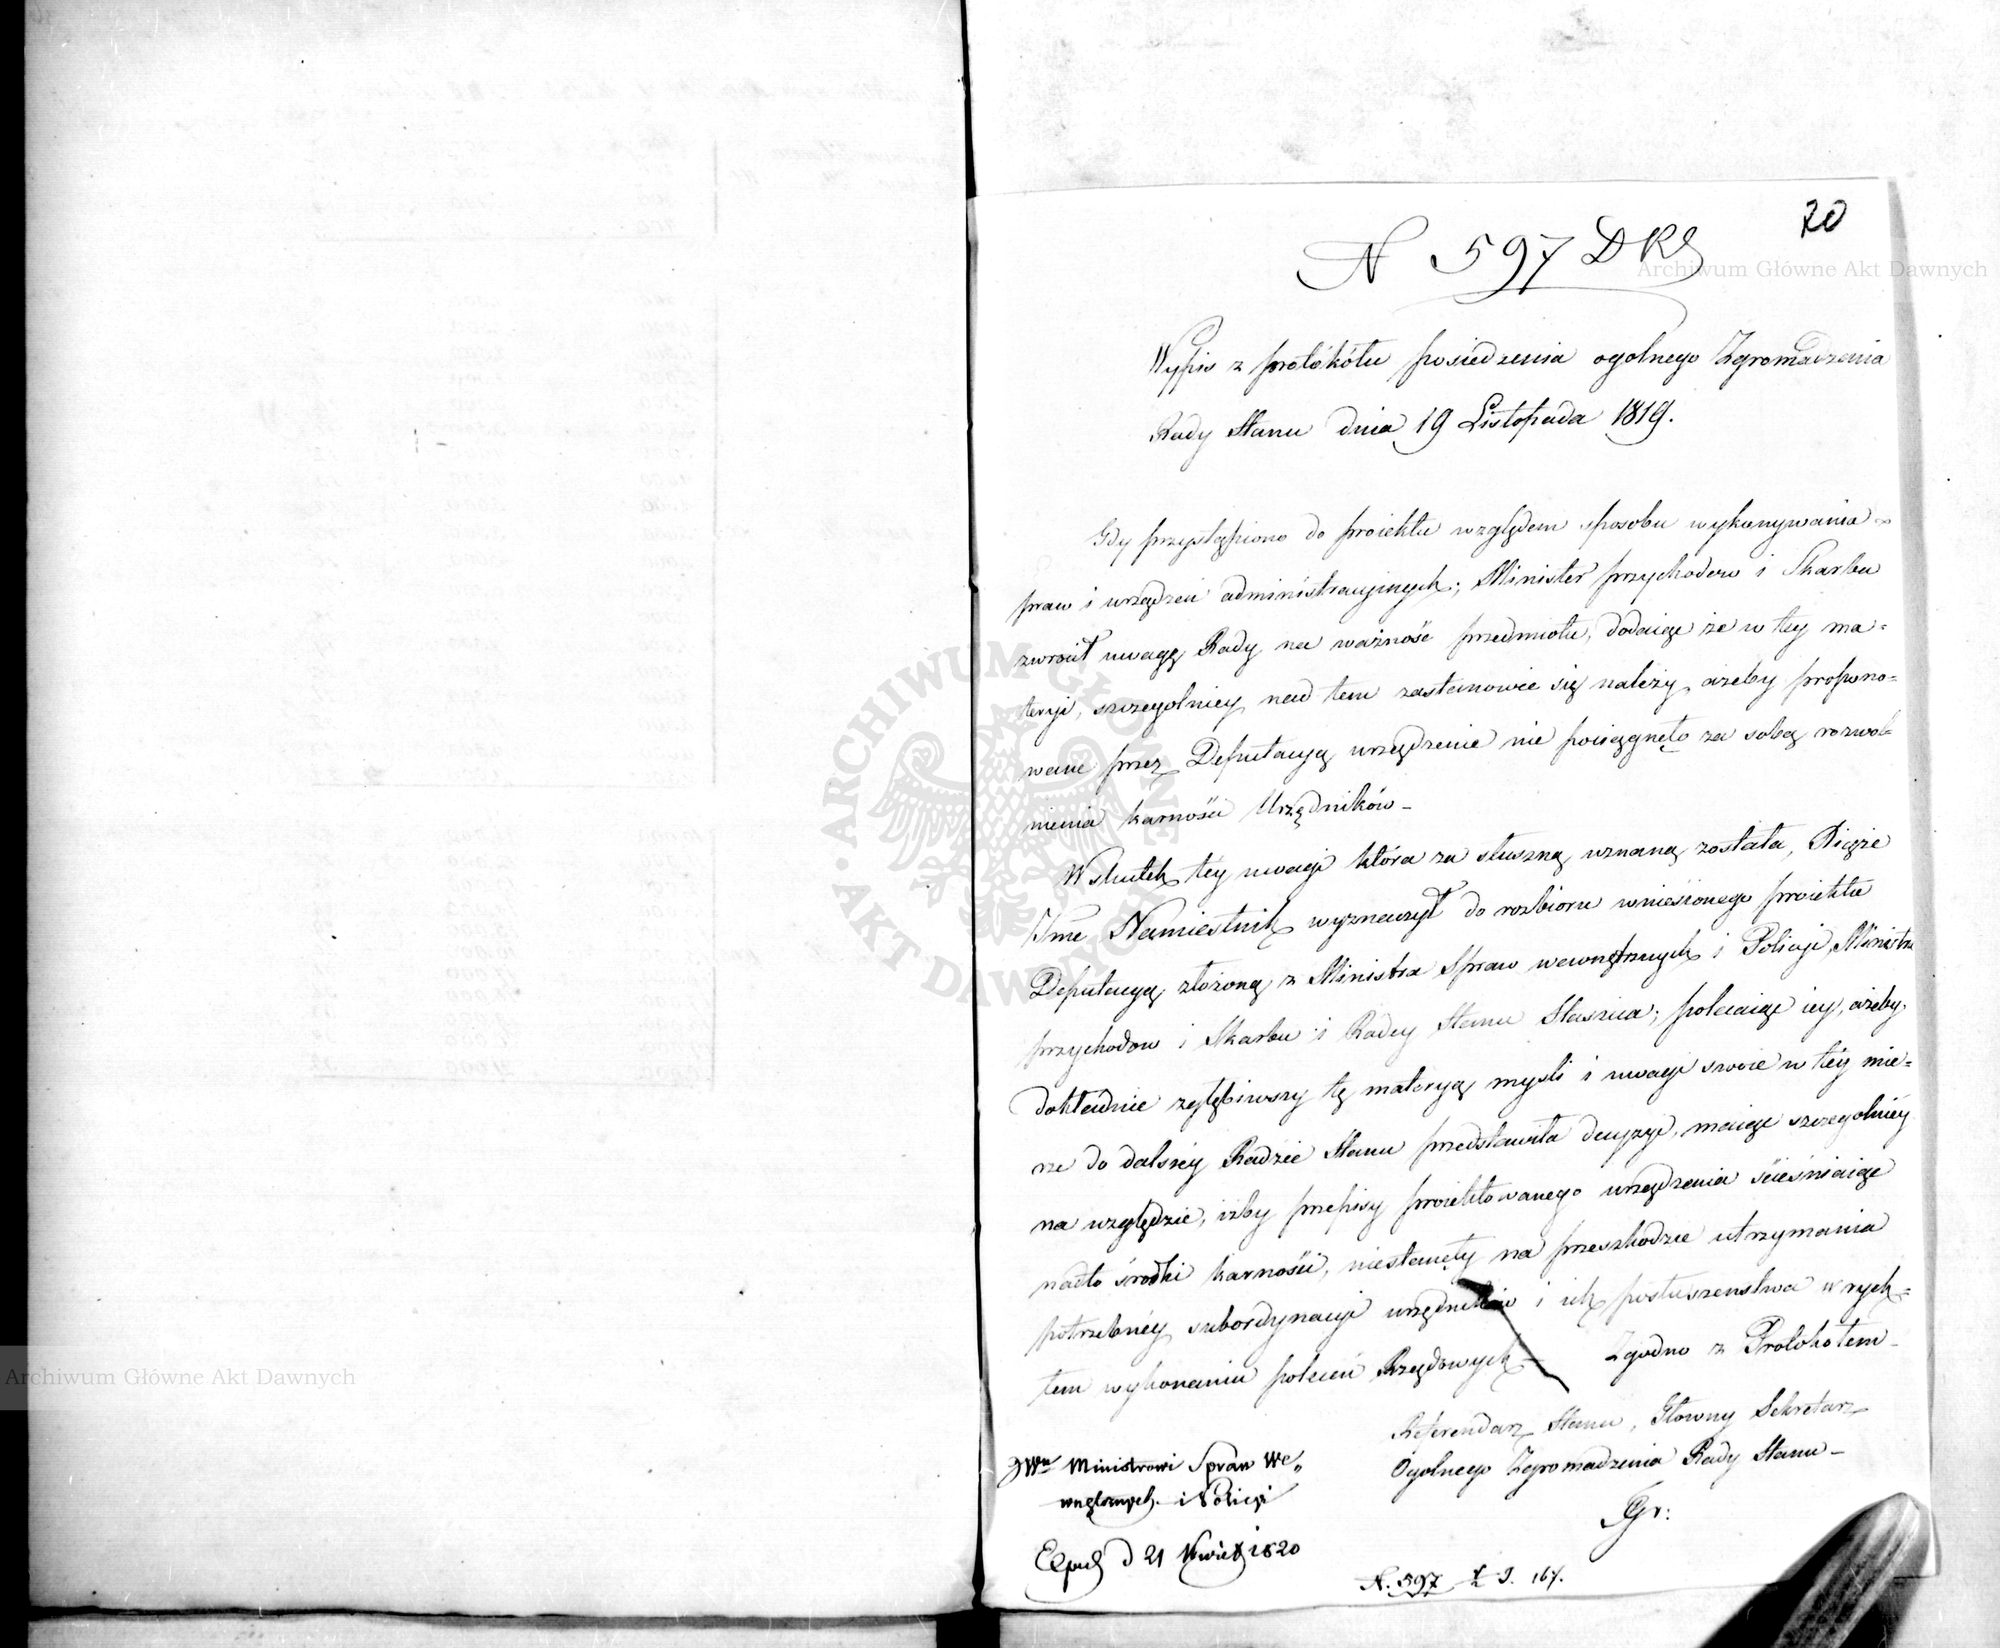 20
N 597 DRS
Wypis z protokółu posiedzenia ogolnego Zgromadzenia
Rady Stanu dnia 19 Listopada 1819.
Gdy przystąpiono do proiektu względem sposobu wykonywania
praw i urządzeń administracyinych; Minister przychodow i Skarbu
zwrócił uwagę Rady na ważność przedmiotu, dodaiąc że w tey ma=
teryi, szczegolniey nad tem zastanowić się należy, ażeby propono=
wane przez Deputacyą urządzenie nie pociągnęło za sobą rozwol=
nienia karności Urzędników –
W skutek téy uwagi która za słuszną uznaną została, Xiąże
Jmć Namiestnik wyznaczył do rozbioru wniesionego proiektu
Deputacyą złożoną z Ministra Spraw wewnętrznych i Policyi, Ministra
przychodow i Skarbu i Radcy Stanu Staszica; polecaiąc iey, ażeby
dokładnie zgłębiwszy tę materyą myśli i uwagi swoie w téy mie=
rze do dalszéy Radzie Stanu przedstawiła decyzyi, maiąc szczegolniéy
na względzie, iżby przepisy proiektowanego urządzenia ścieśniaiąc
nadto środki karności, niestanęły na przeszkodzie utrzymania
potrzebnéy subordynacyi urzędników i ich posłuszeństwa w rych=
łem wykonaniu poleceń Rządowych – Zgodno z Protokołem –
Referendarz Stanu, Główny Sekretarz
Ogolnego Zgromadzenia Rady Stanu –
JWu Ministrowi Spraw We„
wnętrznych i Policyi
d 21 Kwiet 1820
N. 597 167.
Archiwum Główne Akt Dawnych
Archiwum Główne Akt Dawnych
ARCHIWUM GŁÓWNE AKT DAWNYCH